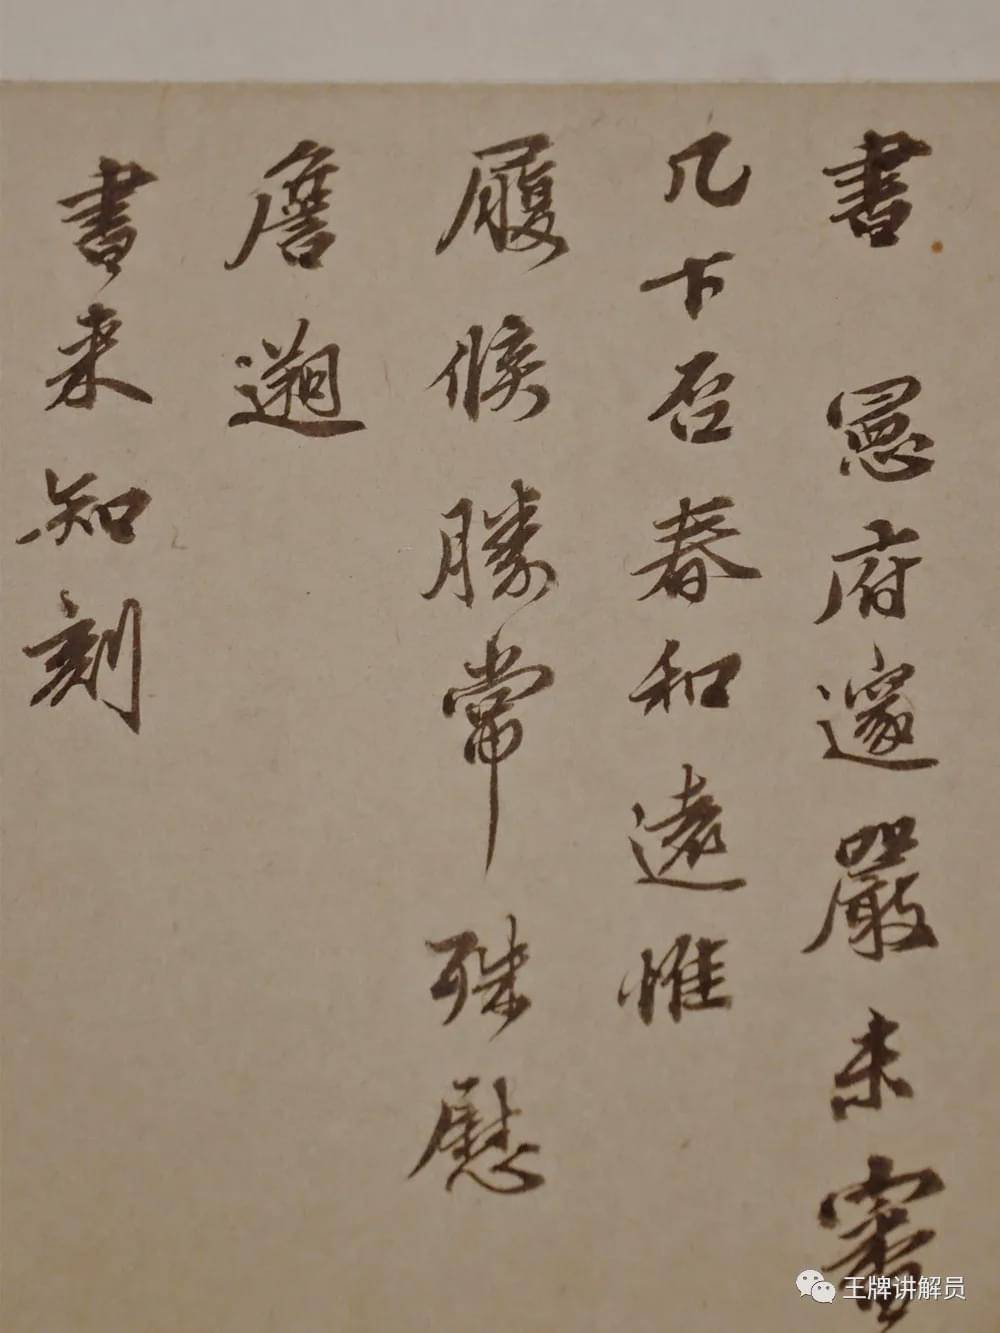 書 憲府邃嚴未審
几下否春和遠惟
履候勝常殊慰
詹遡
書来知刻
王牌讲解员